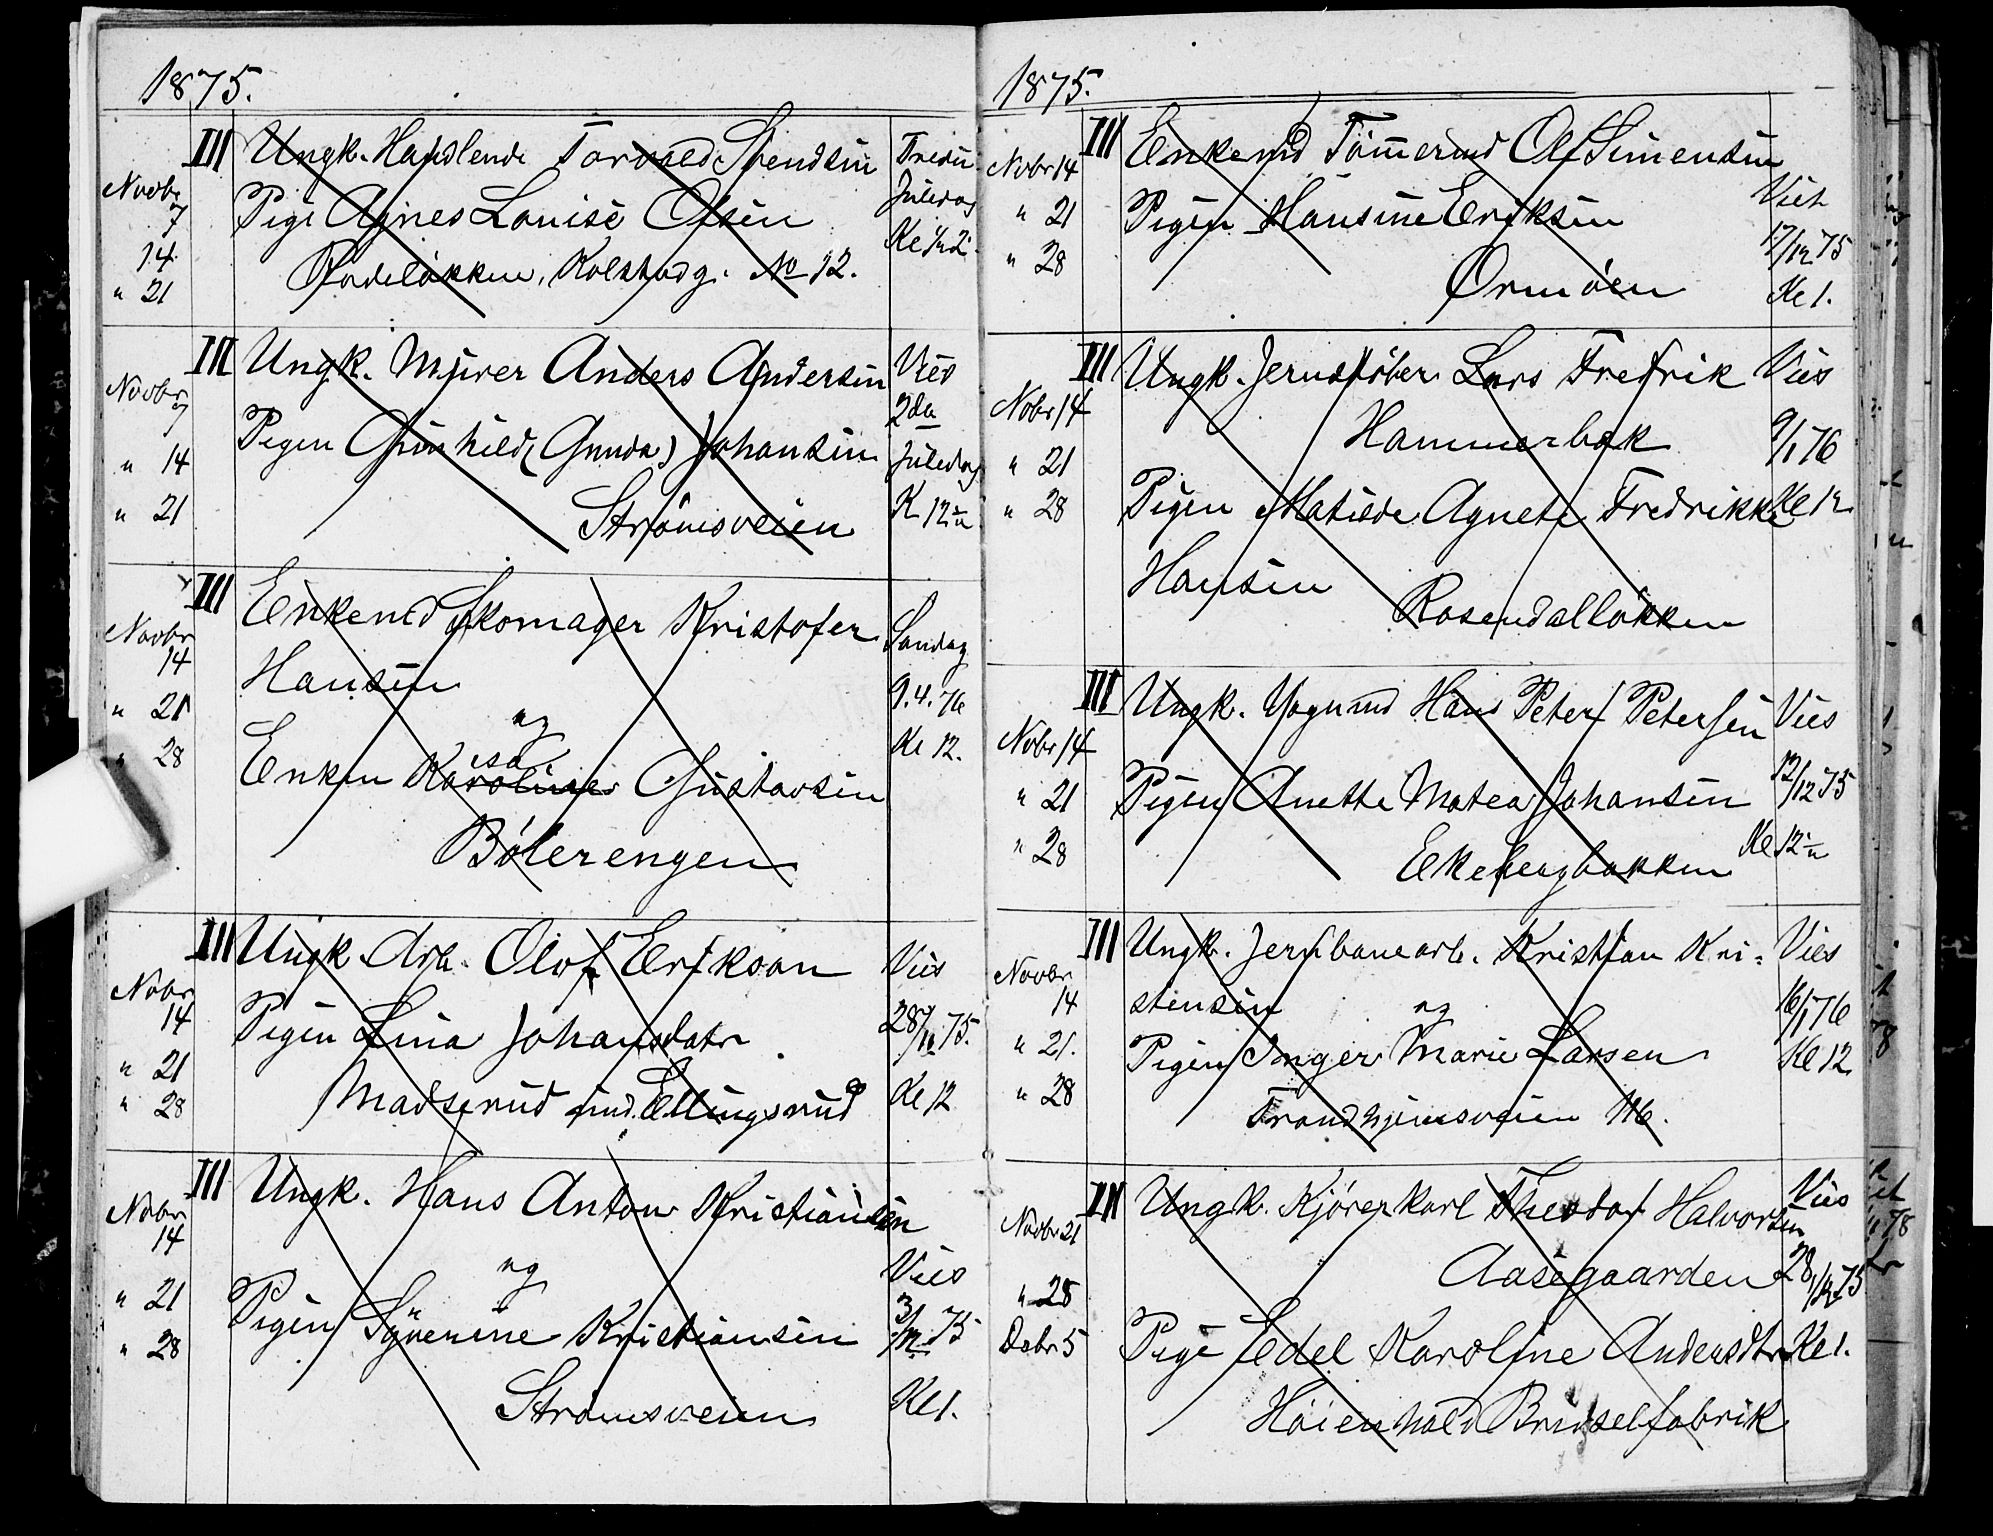 1875.
III Ungk. Handlende Torvald Svendsen Tredie
Novbr 7 Pige Agnes Louise Olsen Juledag
14. Rodeløkken, Kolstadg. No 12. Kl 1/2 2
" 21
III Ungk. Murer Anders Andersen Vies
Novbr 7 2den
" 14 Pigen Gunhild (Gunda) Johansen Juledag
" 21 Strømsveien K 12
III Enkemd Skomager Kristofer Søndag
Novbr 14 Hansen 9.4.76
" 21 og Kl 12.
isa
" 28 Enken Karoline Gustavsen
Bólerengen
III Ungk. Arb. Olof Erikson Vies
Nobr 14 Pigen Lina Johansdatr 28/11 75.
" 21
" 28 Madserud und. Ellingsrud Kl 12
III Ungk. Hans Anton Kristiansen
Nobr 14 og Vies
" 21 Pigen Syverine Kristiansen 3/12 75
" 28 Strømsveien Kl 1.
1875.
III Enkemd Tømmermd Ole Simensen
Nobr 14 Viet
" 21 Pigen Hansine Eriksen 17/12 75
" 28 Ormøen Kl 1.
III Ungk. Jernstøber Lars Fredrik Vies
Nobr 14 Hammerbæk 9/1 76
" 21
" 28 Pigen Matilde Agnete Fredrikke Kl 12
Hansen
Rosendalløkken
III Ungk. Vognmd Hans Peter Petersen Vies
Nobr 14 12/12 75
" 21 Pigen Anette Matea Johansen
" 28 Ekebergbakken Kl 12
III Ungk. Jernbanearb. Kristian Kri- Vies
Novbr 14 stensen og 16/1 76
" 21. Pigen Inger Marie Larsen Kl 12
" 28 Trondhjemsveien 16.
III Ungk. Kjørerkarl Theodor Halvorsen Vies
Novbr 21
" 28 Aasegaarden 28/12 75
Debr 5 Pige Edel Karoline Andersdtr Kl 1.
Høienhald Brudselfabrik